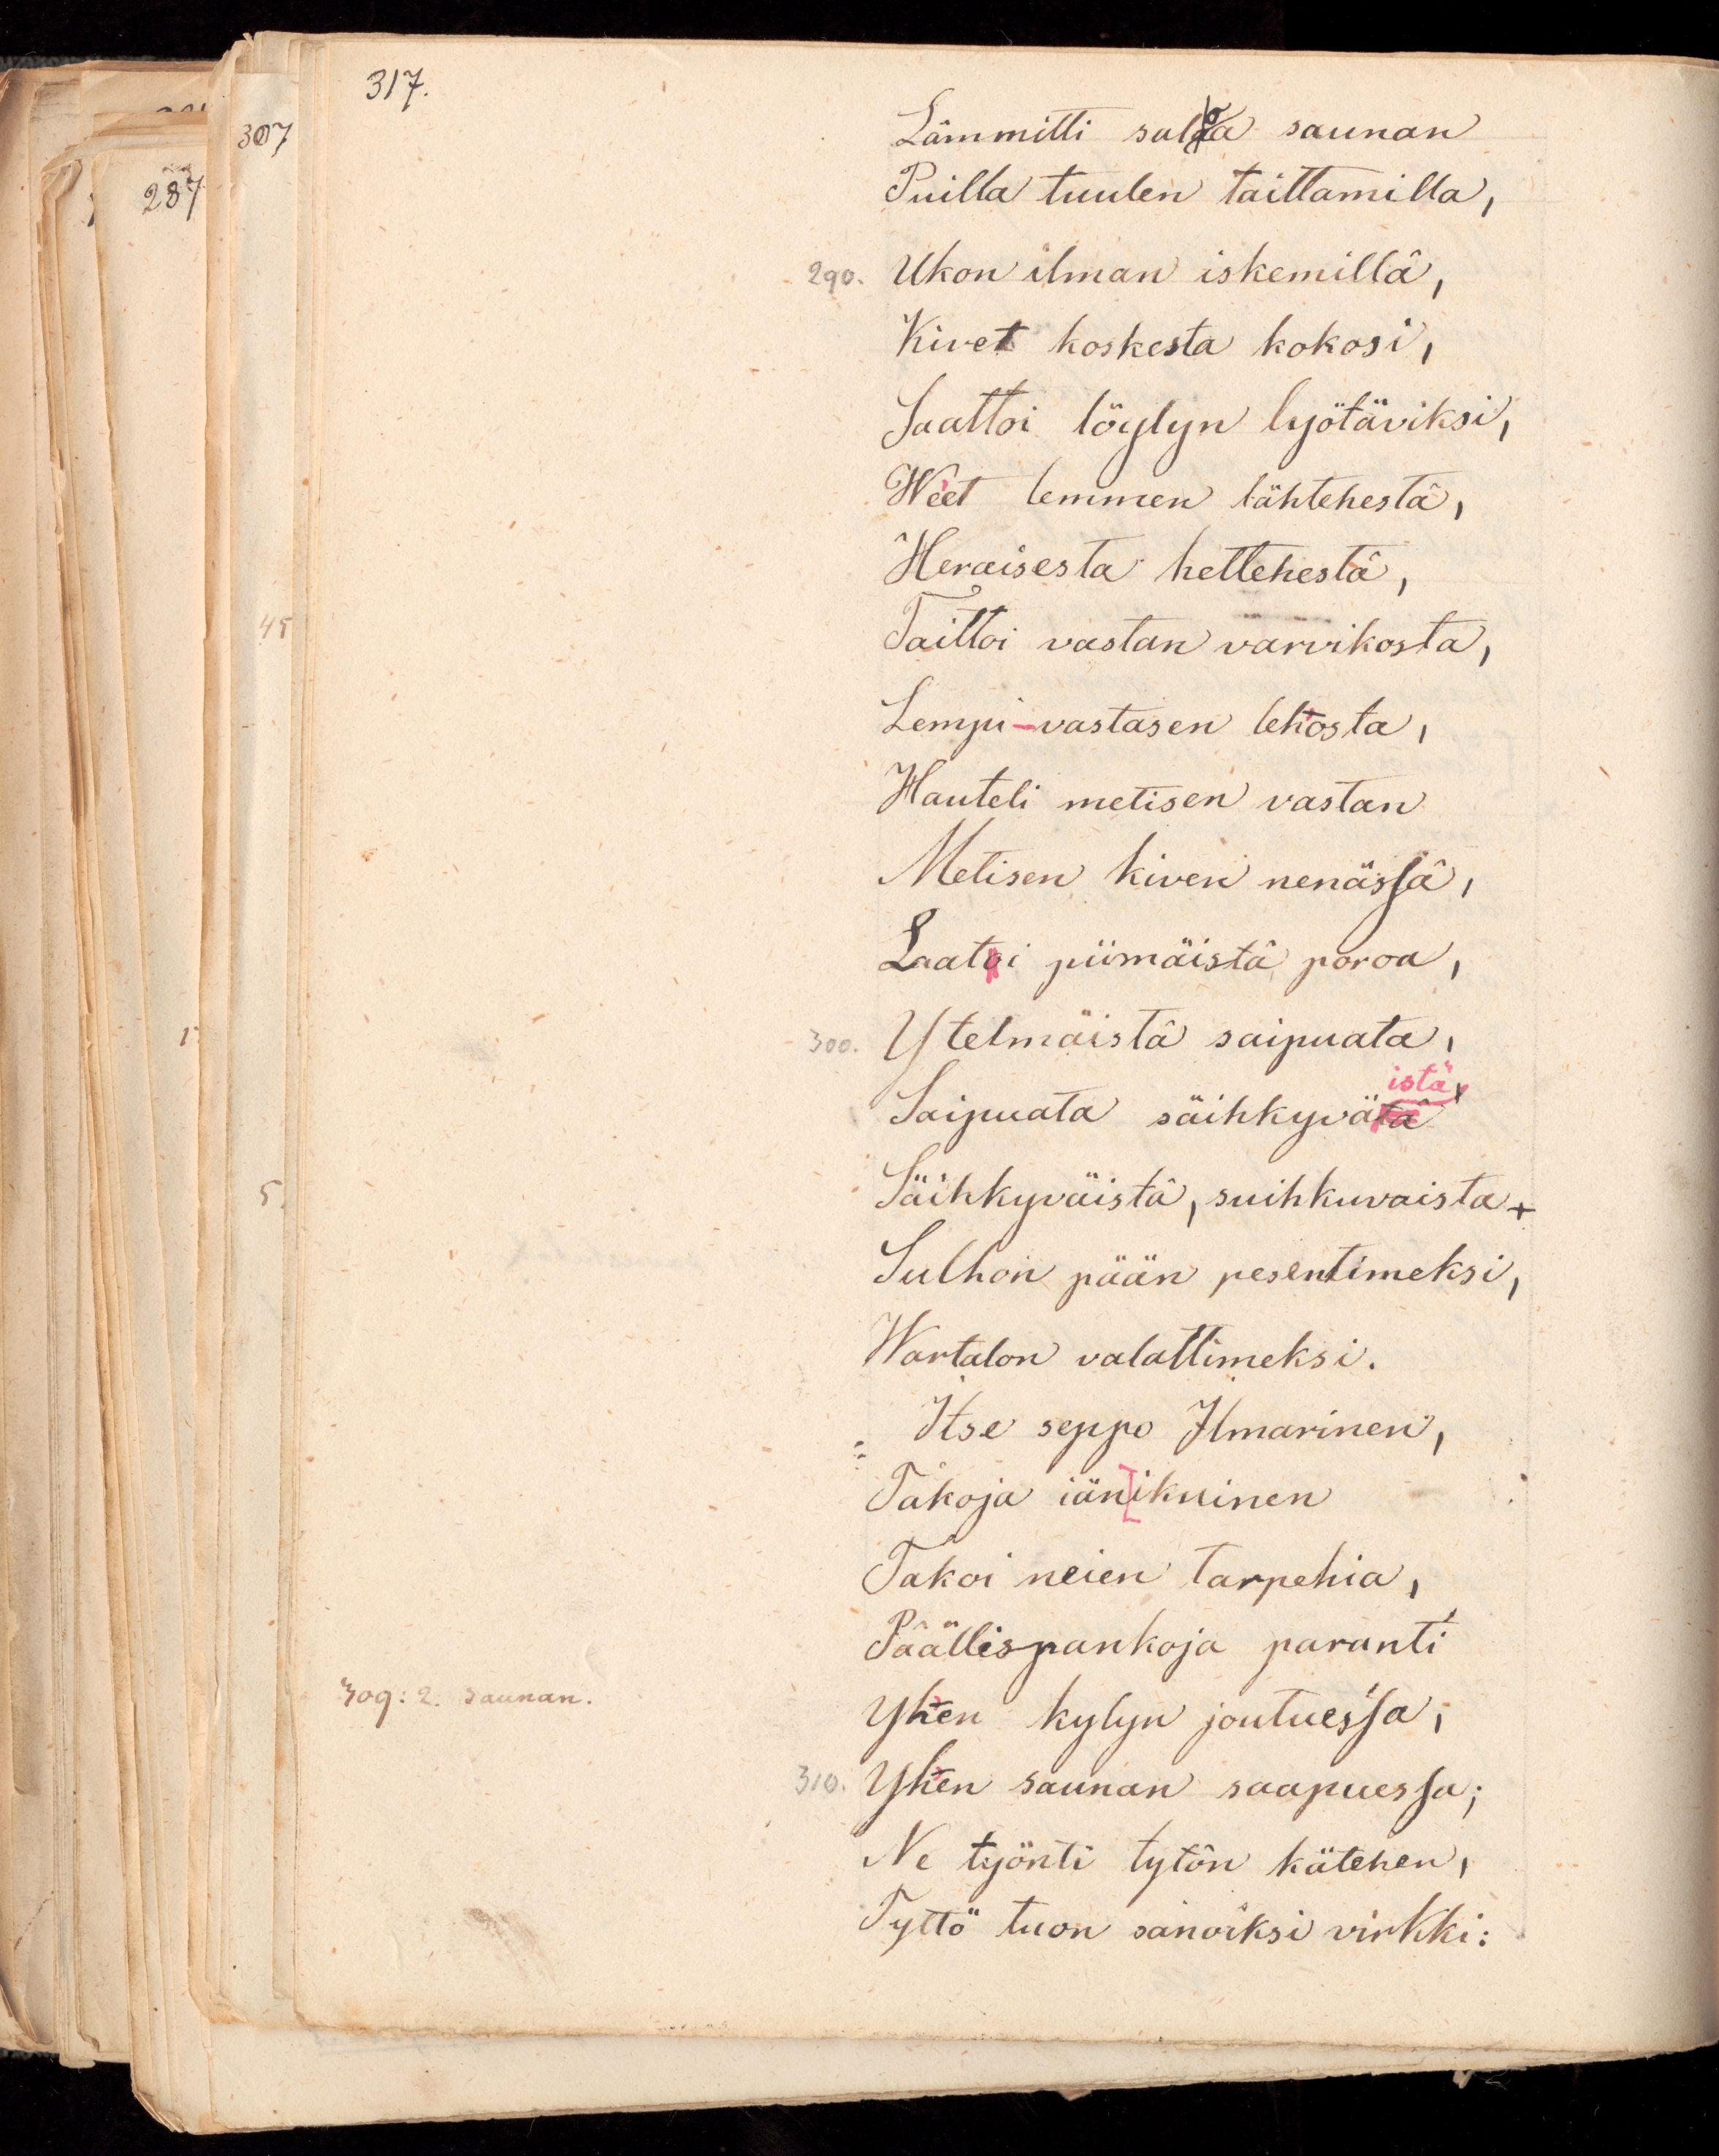 317.
307
287
Lämmitti salaa saunan
Puilla tuulen taittamilla,
290. Ukon ilman iskemillä,
Kivet koskesta kokosi,
Saattoi löylyn lyötäviksi,
Weet lemmen lähtehestä,
Heraisesta hettehestä,
45
Taittoi vastan varvikosta,
Lempi-vastasen lehosta,
Hauteli metisen vastan
Metisen kiven nenässä,
Laatoi piimäistä poroa,
1
300. Ytelmäistä saipuata,
istä,
Saipuata säihkyvätä
5.
Säihkyväistä, suihkuvaista +
Sulhon pään pesentimeksi,
Wartalon valattimeksi.
Itse seppo Ilmarinen,
Takoja iän ikuinen
Takoi neien tarpehia,
Päällispankoja paranti
309: 2. saunan.
Yhen kylyn joutuessa,
310. Yhen saunan saapuessa;
Ne työnti tytön kätehen,
Tyttö tuon sanoiksi virkki: